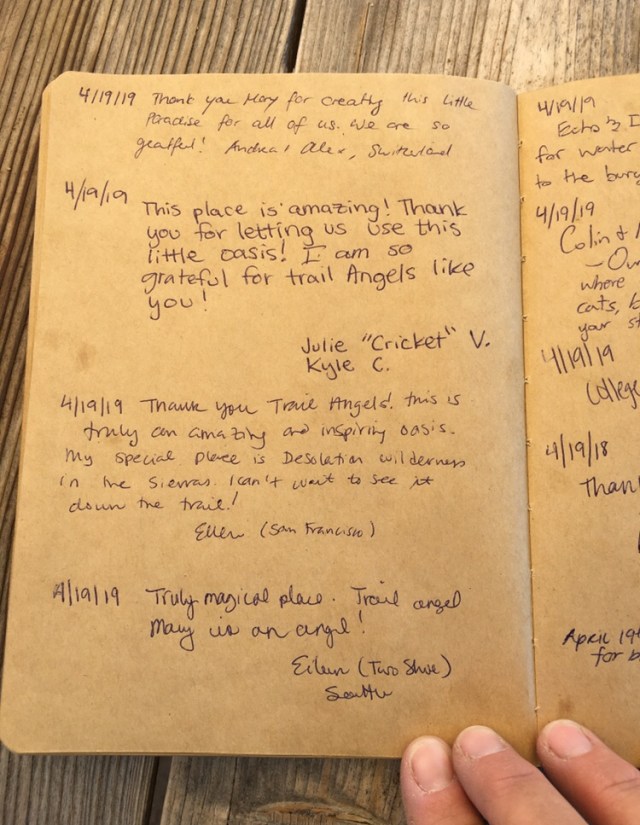 4/19/19 Thank you Mary for creating this little
Paradise for all of us. We are so
grateful! Andrea & Alex, Switzerland
4/19/19
This place is amazing! Thank
you for letting us use this
little oasis! I am so
grateful for trail Angels like
you!
Julie "Cricket" V.
Kyle C.
4/19/19 Thank you Trail Angels! this is
truly an amazing and inspiring oasis.
My special place is Desolation wilderness
in the Sierras. I can't wait to see it
down the trail!
Ellen (San Francisco)
4/19/19 Truly magical place. Trail angel
Mary is an angel!
Eileen (Two Shoe)
Seattle
4/19/19
Echo &
for water
to the
4/19/19
Colin &
where
cats,
your
4/19/19
4/19/18
April
for